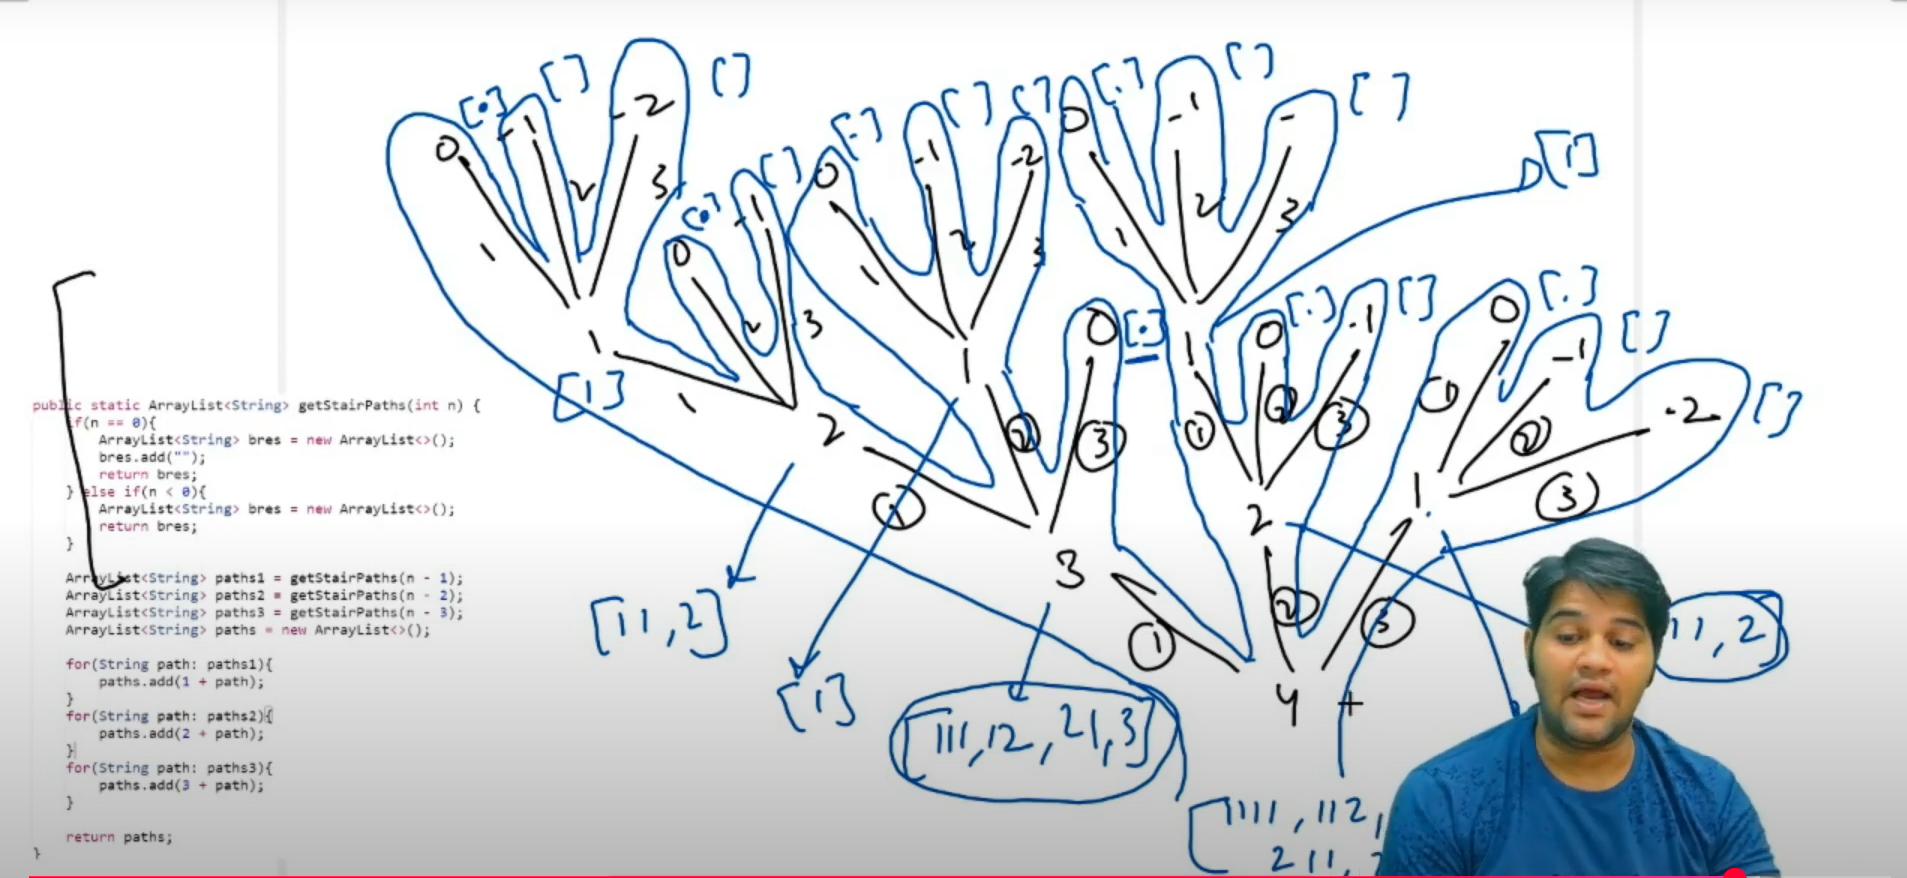 public static ArrayList<String> getStairPaths(int n) {
if(n == 0){
ArrayList<String> bres = new ArrayList<>();
bres.add("");
return bres;
} else if(n < 0){
ArrayList<String> bres = new ArrayList<>();
return bres;
}
ArrayList<String> paths1 = getStairPaths(n - 1);
ArrayList<String> paths2 = getStairPaths(n - 2);
ArrayList<String> paths3 = getStairPaths(n - 3);
ArrayList<String> paths = new ArrayList<>();
for(String path: paths1){
paths.add(1 + path);
}
for(String path: paths2){
paths.add(2 + path);
}
for(String path: paths3){
paths.add(3 + path);
}
return paths;
}
0 [.] -1 [] -2 []
1 2 3
1
[1]
0 [.] -1 []
1 2 3
2
[11,2]
0 [.] -1 [] -2 []
1 2 3
1
[1]
0 [.]
1 2 3
3
[111,12,21,3]
0 [.] -1 [] - []
1 2 3
1 [1]
0 [.] -1 []
1 2 3
2
11,2]
0 [.] -1 [] -2 []
1 2 3
1
1 2 3
4 +
[1111,112,
211,